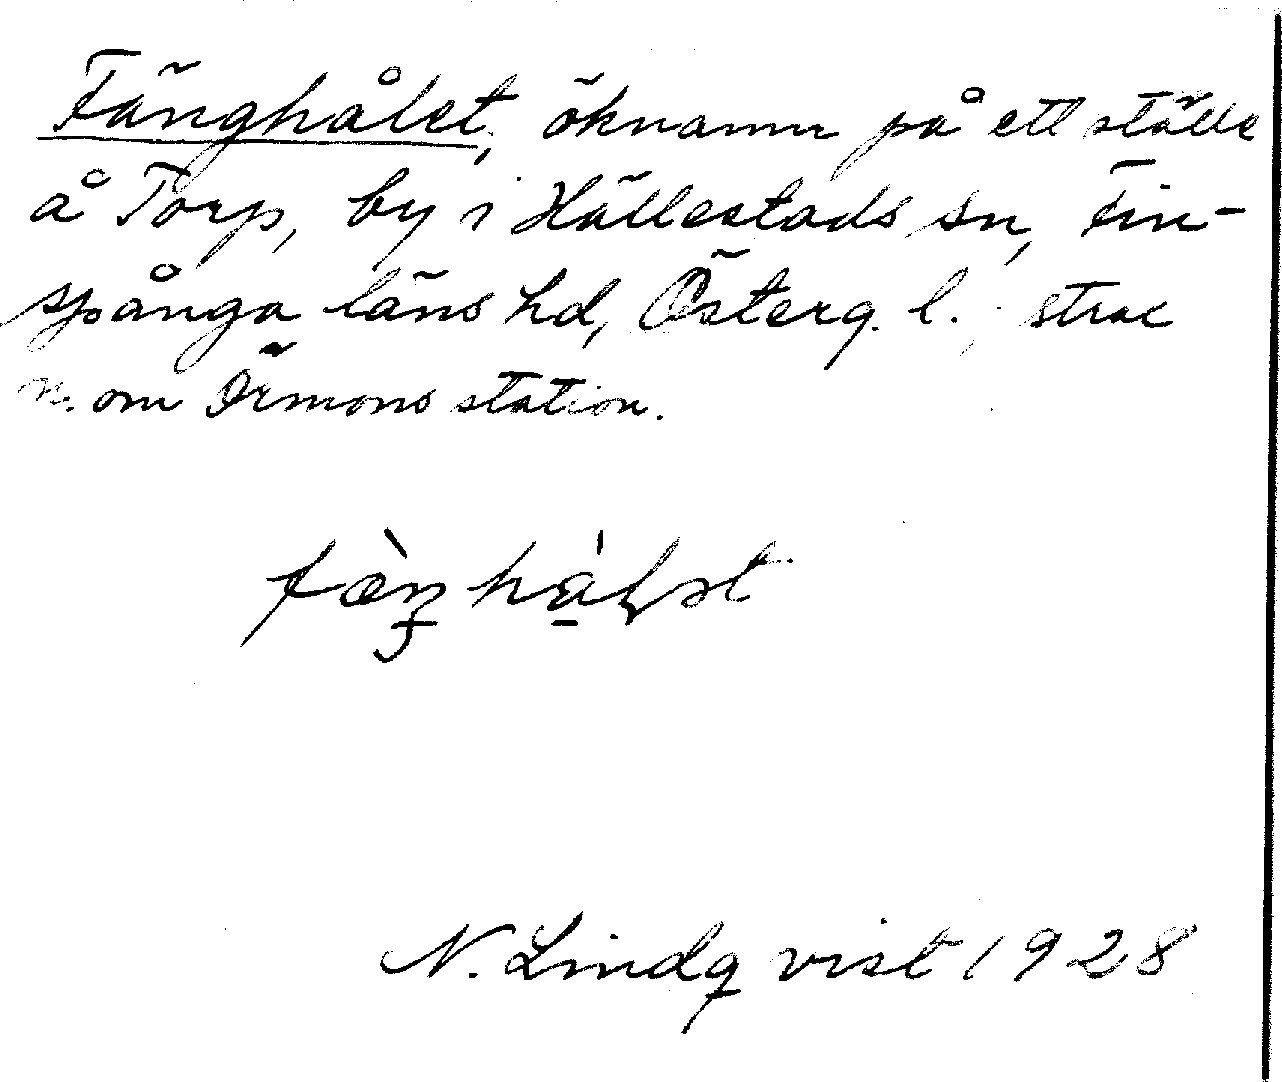 Fänghålet, öknamn på ett ställe
å Torp, by i Hällestads sn, Fin-
spånga läns hd, Österg. l., strax
n. om Örmons station.
N. Lindqvist 1928